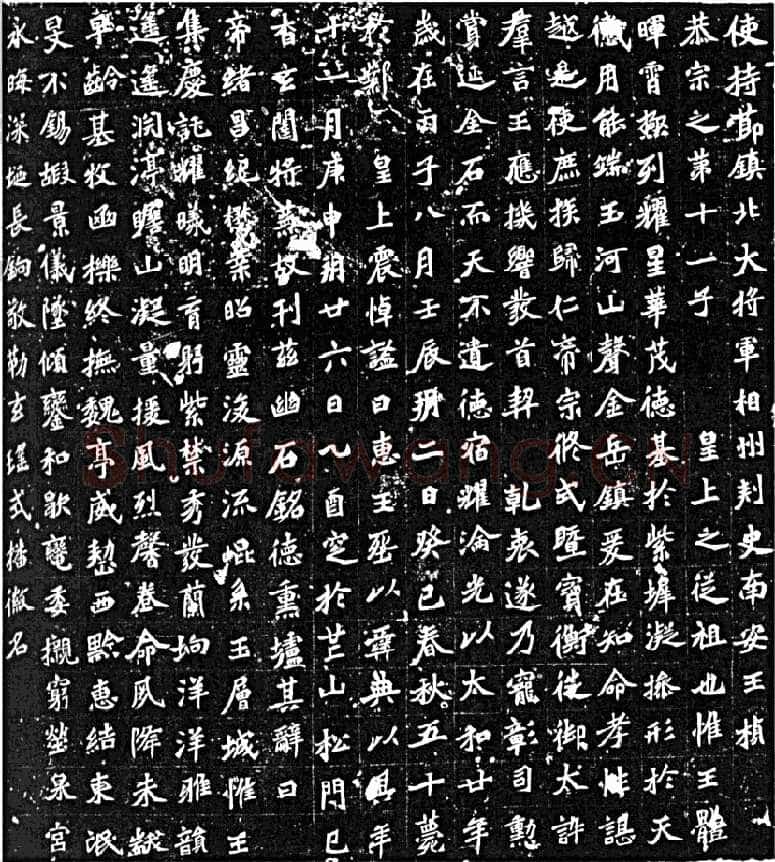 使持節鎮北大将軍相州刺史南安王楨
恭宗之第十一子　皇上之從祖也惟王體
暉霄極列耀星華茂德基於紫墀凝操形於天
儀用能端玉河山聲金岳鎮爰在知命孝性諶
越是使庶族歸仁帝宗攸式暨寶衡徙御太訏
羣言王應機響發首契　乾衷遂乃寵彰司勳
賞延金石而天不遺德宿耀淪光以太和廿年
歲在丙子八月壬辰朔二日癸巳春秋五十薨
於鄴　皇上震悼謚曰惠王葬以彝典以其年
十一月庚申朔廿六日乙酉窆於芒山松門已
杳玄闥將蕪故刊茲幽石銘德熏壚其辭曰
帝緒昌紀懋業昭靈浚源流崐系玉層城惟王
集慶託耀曦明育躬紫禁秀發蘭坰洋洋雅韻
遙遙淵渟瞻山凝量援風烈馨卷命夙降未黻
早齡基牧豳櫟終撫魏亭威懃西黔惠結東氓
旻不錫嘏景儀墜傾鑾和歇轡委櫬窮塋泉宮
永晦深埏長鐍敬勒玄瑤式播徽名
Shufawang.CN